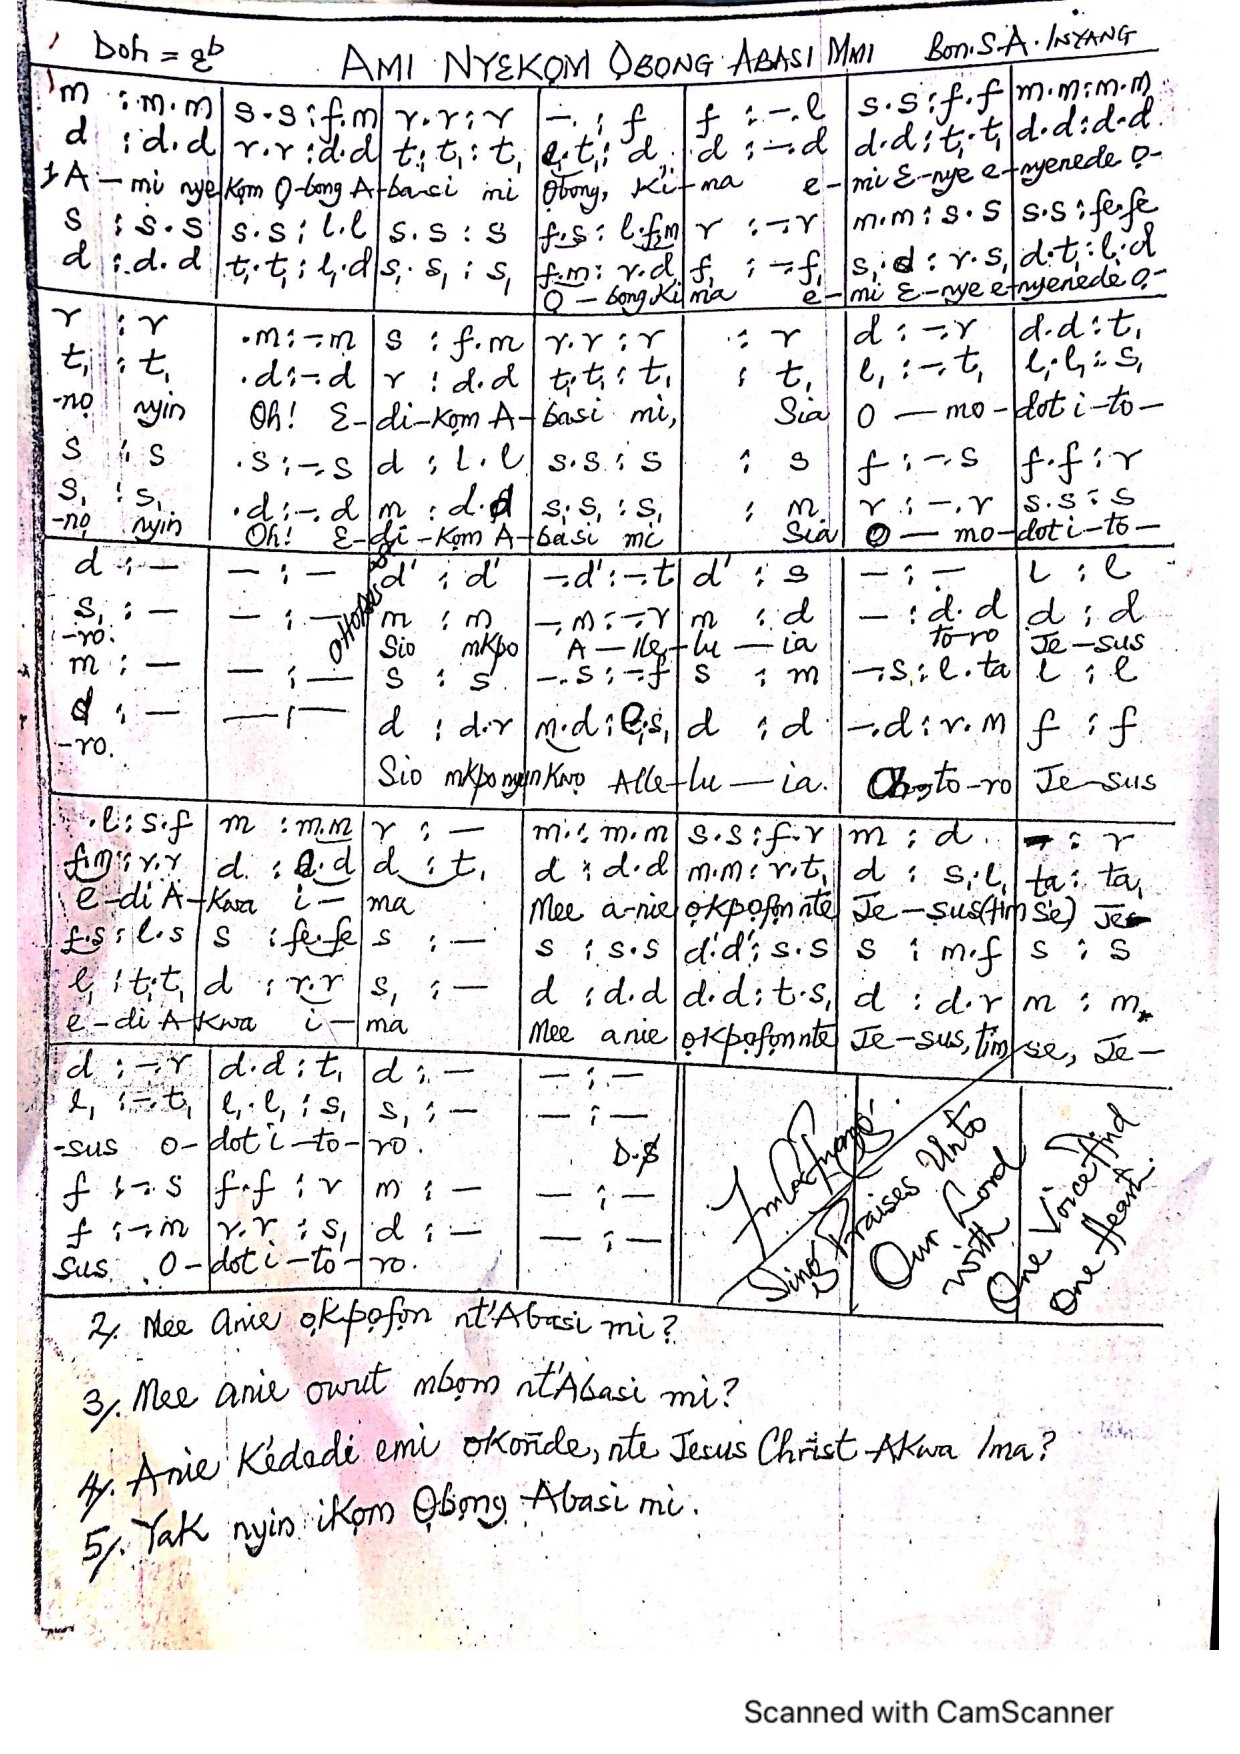 Doh = εb AMI NYEKỌM ỌBONG ABASI MMI Bon. S.A. INYANG
m : m.m | s.s : f.m | r.r : r | -. : f | f : -.l | s.s : f.f | m.m : m.m
d : d.d | r.r : d.d | t₁.t₁ : t₁ | l₁.t₁ : d | d : -.d | d.d : t₁.t₁ | d.d : d.d
1 A - mi nye | kọm Ọ-bong A- | ba-si mi | Ọbong, Ki - | ma e- | mi E-nye e- | nyenede Ọ-
s : s.s | s.s : l.l | s.s : s | f.s : l.fm | r : -.r | m.m : s.s | s.s : fe.fe
d : d.d | t₁.t₁ : l₁.d | s₁.s₁ : s₁ | f.m : r.d | f₁ : -.f₁ | s₁.d : r.s₁ | d.t₁ : l₁.d
O - bong Ki | ma e- | mi E-nye e- | nyenede O-
r : r | .m : -.m | s : f.m | r.r : r | : r | d : -.r | d.d : t₁
t₁ : t₁ | .d : -.d | r : d.d | t₁.t₁ : t₁ | : t₁ | l₁ : -.t₁ | l₁.l₁ : s₁
-nọ nyin | Oh! E- | di-kọm A- | basi mi, | Sia | O - mo - | dot i-to-
s : s | .s : -.s | d : l.l | s.s : s | : s | f : -.s | f.f : r
s₁ : s₁ | .d : -.d | m : d.d | s₁.s₁ : s₁ | : m | r : -.r | s.s : s
-nọ nyin | Oh! E- | di-Kọm A- | basi mi | Sia | O - mo- | dot i-to-
d : - | - : - | d' : d' | -.d' : -.t | d' : s | - : - | l : l
s₁ : - | - : - | m : m | -.m : -.r | m : d | - : d.d | d : d
-ro. Sio mKpo | A - lle- | lu - ia | to-ro | Je-sus
m : - | - : - | s : s | -.s : -.f | s : m | -.s : l.ta | l : l
d : - | - : - | d : d.r | m.d : l₁.s₁ | d : d | -.d : r.m | f : f
-ro. Sio mkpo nyin Kwọ Alle-lu - ia. Oh, to-ro Je-sus
.l : s.f | m : m.m | r : - | m : m.m | s.s : f.r | m : d. | - : r
f.m : r.r | d : d.d | d : t₁ | d : d.d | m.m : r.t₁ | d : s₁.l₁ | ta : ta₁
e-di A-Kwa i - ma Mee a-nie ọkpọfọn nte Je-sus (tim se) Je-
f.s : l.s | s : fe.fe | s : - | s : s.s | d'.d' : s.s | s : m.f | s : s
l₁ : t₁.t₁ | d : r.r | s₁ : - | d : d.d | d.d : t.s₁ | d : d.r | m : m
e-di A-Kwa i - ma Mee anie ọkpọfọn nte Je-sus, tim se, Je-
d : -.r | d.d : t₁ | d : - | - : -
l₁ : -.t₁ | l₁.l₁ : s₁ | s₁ : - | - : -
-sus O- | dot i-to- | ro. D.S
f : -.s | f.f : r | m : - | - : -
f : -.m | r.r : s₁ | d : - | - : -
sus O- | dot i-to- | ro.
Sing Praises Unto
Our Lord
with
One Voice And
One Heart.
2/. Mee anie ọkpọfọn nt'Abasi mi?
3/. Mee anie owut mbọm nt'Abasi mi?
4/. Anie Kédedi emi ọkoñde, nte Jesus Christ Akwa Ima?
5/. Yak nyin ikọm Ọbọng Abasi mi.
Scanned with CamScanner